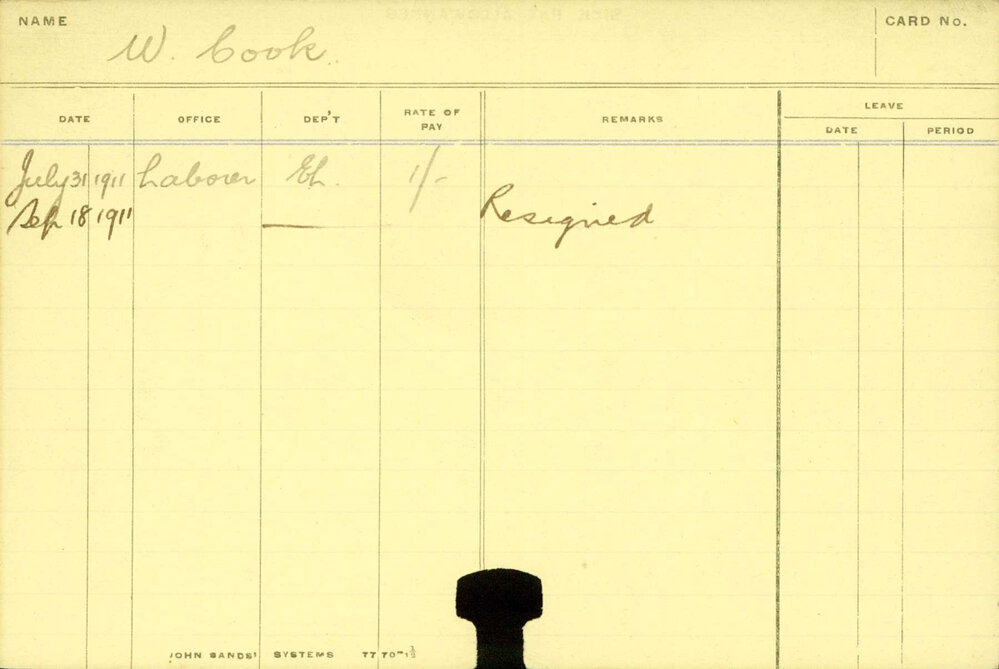 NAME
CARD No.
W. Cook.
LEAVE
DATE OFFICE DEP'T RATE OF PAY REMARKS DATE PERIOD
July 31 1911 Laborer Eh. 1/-
Sep 18 1911 — Resigned
JOHN SANDS' SYSTEMS 77 70-1½